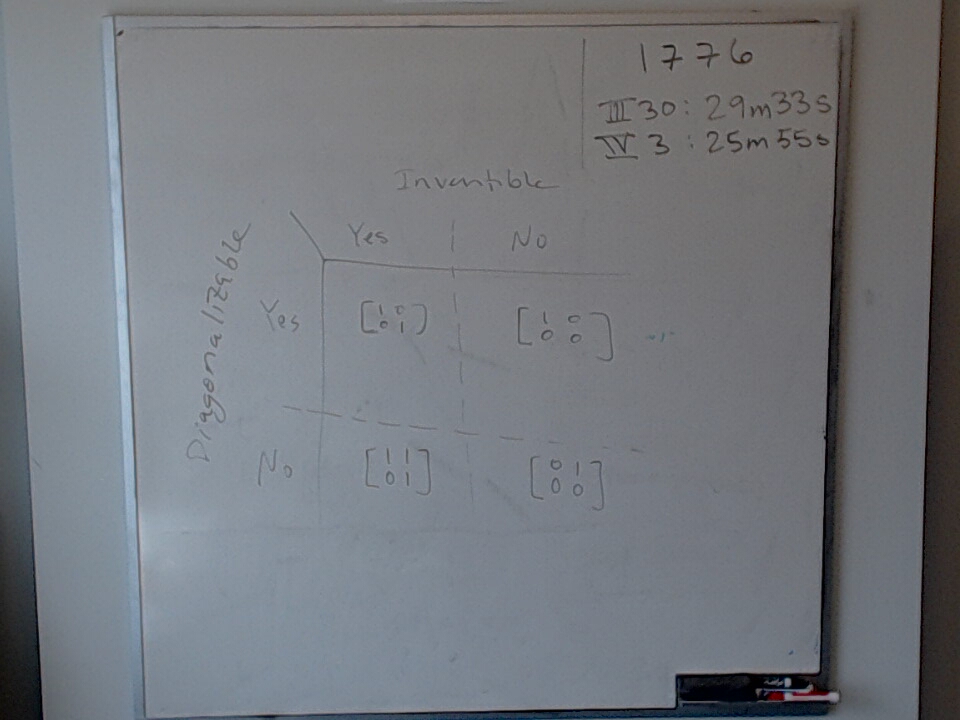 1776
III 30: 29m33s
IV 3 : 25m55s
Invertible
Yes No
Diagonalizable
Yes [1 0 [1 0
0 1] 0 0]
No [1 1 [0 1
0 1] 0 0]